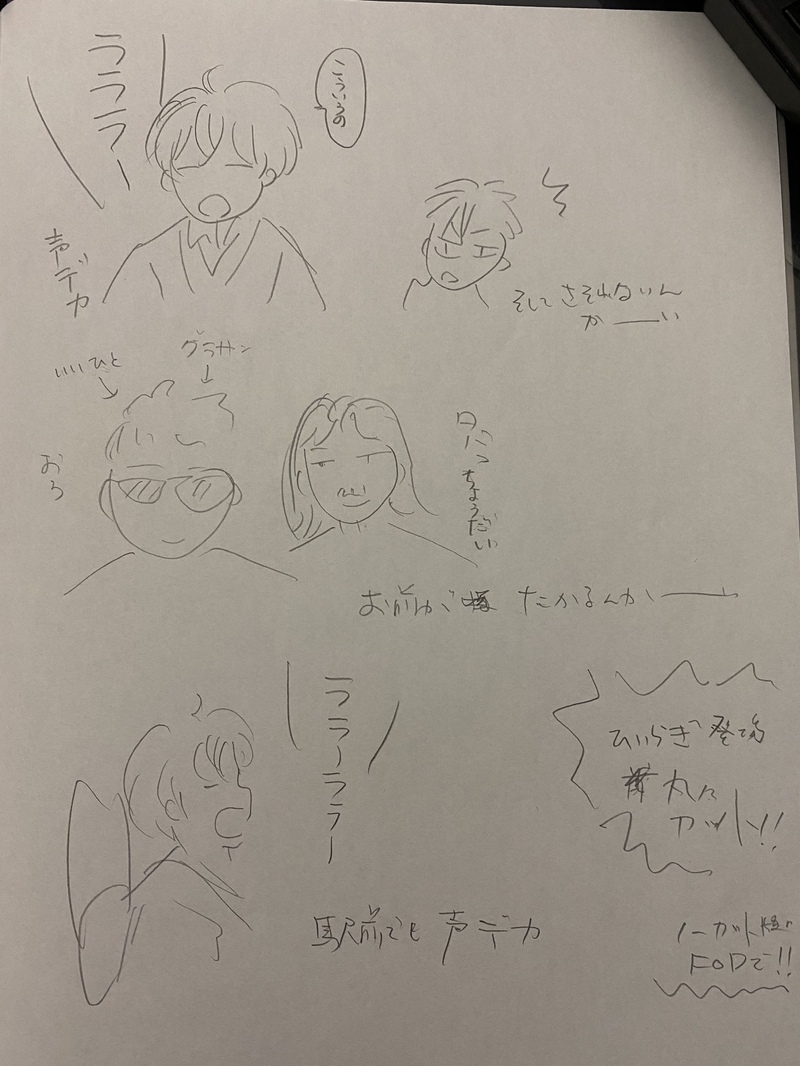 ラララー
こういうの
声デカ
そして させれないん
かーい
いいひと
グラサン
おろ
ちょうだい
お前が たかるんかー
ララーララー
ひいらぎ 登場
丸々
カット!!
駅前でも 声デカ
ノーカット版
FODで!!